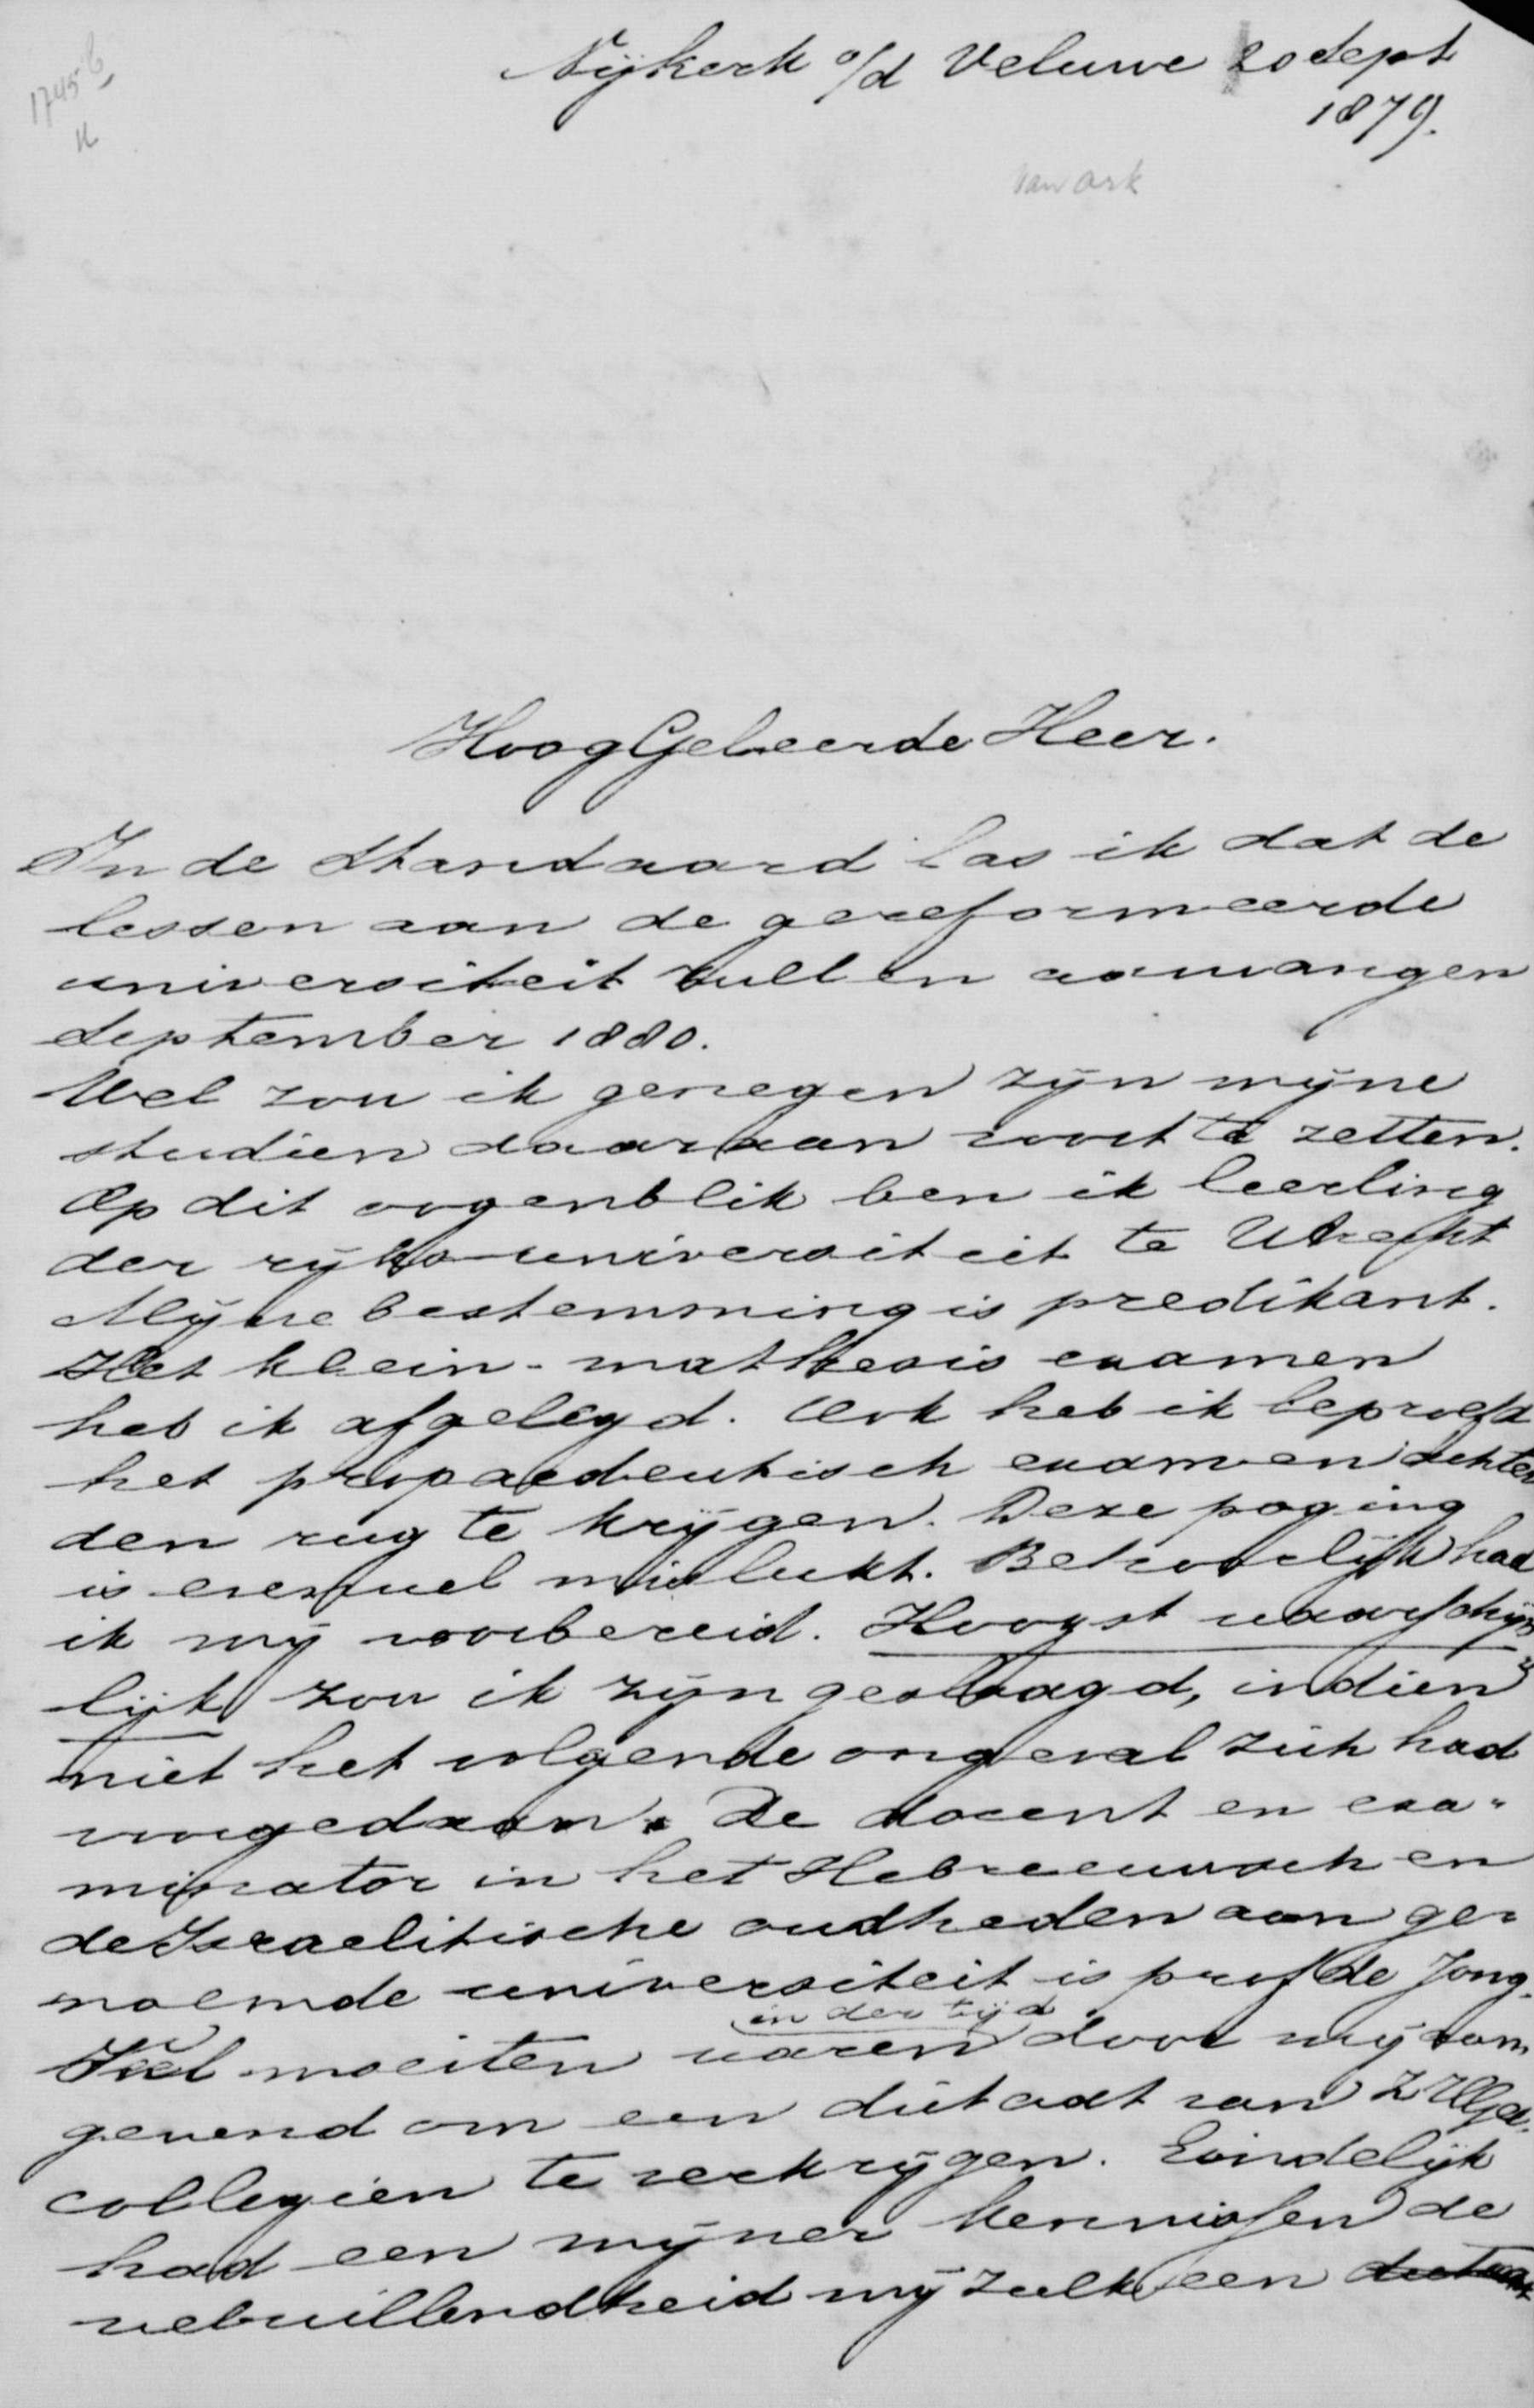 1745b
Nijkerk o/d Veluwe 20 Sept
1879.
van Ark
HoogGeleerde Heer.
In de Standaard las ik dat de
lessen aan de gereformeerde
universiteit zullen aanvangen
September 1880.
Wel zou ik genegen zijn mijne
studien daaraan voort te zetten.
Op dit oogenblik ben ik leerling
der rijks-universiteit te Utrecht
Mijne bestemming is predikant.
Het klein-mathesis examen
heb ik afgelegd. Ook heb ik beproefd
het propaedeutisch examen achter
den rug te krijgen. Deze poging
is evenwel mislukt. Behoorlijk had
ik mij voorbereid. Hoogst waarschijn
lijk zou ik zijn geslaagd, indien
niet het volgende ongeval zich had
voorgedaan. De docent en exa-
minator in het Hebreeuwsch en
de Israelitische oudheden aan ge-
noemde universiteit is prof de Jong.
in der tijd
Veel moeiten waren door mij aan
gewend om een dictaat van ZHGel.
collegien te verkrijgen. Eindelijk
had een mijner kennissen de
welwillendheid mij zulk een dictaat